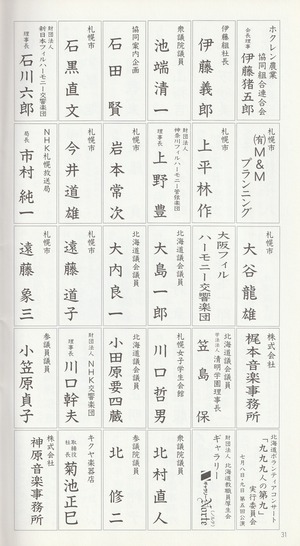 ホクレン農業
協同組合連合会
会長理事 伊藤猪五郎
伊藤組社長
伊藤義郎
衆議院議員
池端清一
協同案内企画
石田賢
札幌市
石黒直文
財団法人
新日本フィルハーモニー交響楽団
理事長 石川六郎
札幌市
(有)M&M
プランニング
札幌市
上平林作
財団法人
神奈川フィルハーモニー管弦楽団
理事長 上野豊
札幌市
岩本常次
札幌市
今井道雄
NHK札幌放送局
局長 市村純一
札幌市
大谷龍雄
大阪フィル
ハーモニー交響楽団
北海道議会議員
大島一郎
北海道議会議員
大内良一
札幌市
遠藤道子
札幌市
遠藤象三
株式会社
梶本音楽事務所
北海道議会議員
学校法人 清明学園理事長
笠島保
札幌女子学生会館
川口哲男
北海道議会議員
小田原要四蔵
財団法人 NHK交響楽団
理事長 川口幹夫
参議院議員
小笠原貞子
北海道ボランティアコンサート
「九九九人の第九」
実行委員会
七月八日・九日 第五回公演
財団法人 北海道教職員厚生会
ギャラリー
衆議院議員
北村直人
参議院議員
北修二
キクヤ楽器店
取締役社長 菊池正巳
株式会社
神原音楽事務所
31